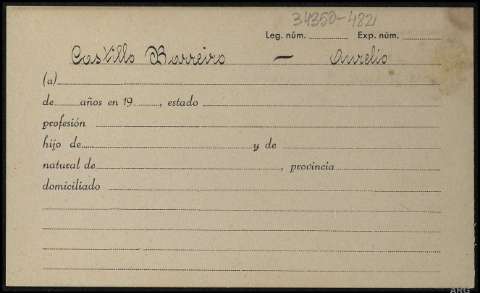 34350-482
Leg. núm. Exp. núm.
Castillo Barreiro — Aurelio
(a)
de años en 19 , estado
profesión
hijo de y de
natural de , provincia
domiciliado
ARG